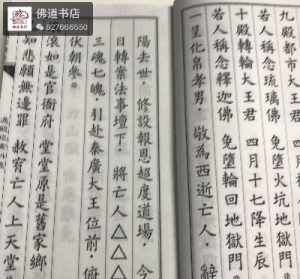 佛道书店
927666650
九殿都市大王君 四月
若人稱念琉璃佛 免墮火坑地獄門
十殿轉輪大王君 四月十七降生辰
若人稱念釋迦佛 免墮輪回地獄門
一呈化帛孝男。敬為西逝亡人。辭
陽去世。修設報恩超度道場。今
日轉案法事壇下。將亡人△△△
三魂七魄。引赴秦廣大王位前。俯
伏朝參。
滾如是官衙府 堂堂原是舊家鄉
如悲願無邊罪 救宥亡人上天堂